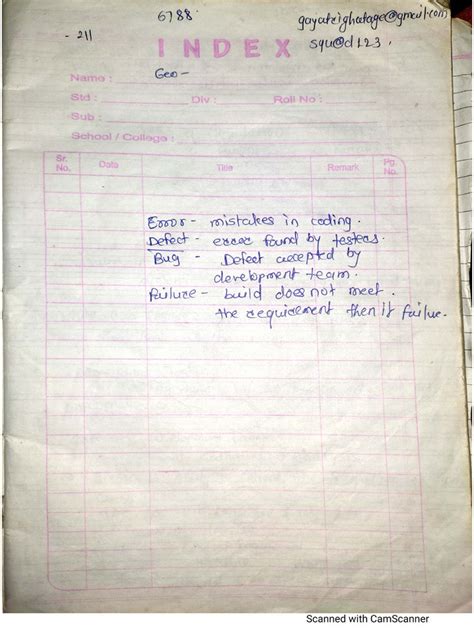 6788
gayatrighatage@gmail.com
- 211
squ@d123.
INDEX
Name : Geo -
Std : Div : Roll No :
Sub :
School / College :
Sr. No. Date Title Remark Pg. No.
Error - mistakes in coding.
Defect - error found by testers.
Bug - Defect accepted by
development team.
Failure - build does not meet.
the requirement then it failue.
Scanned with CamScanner